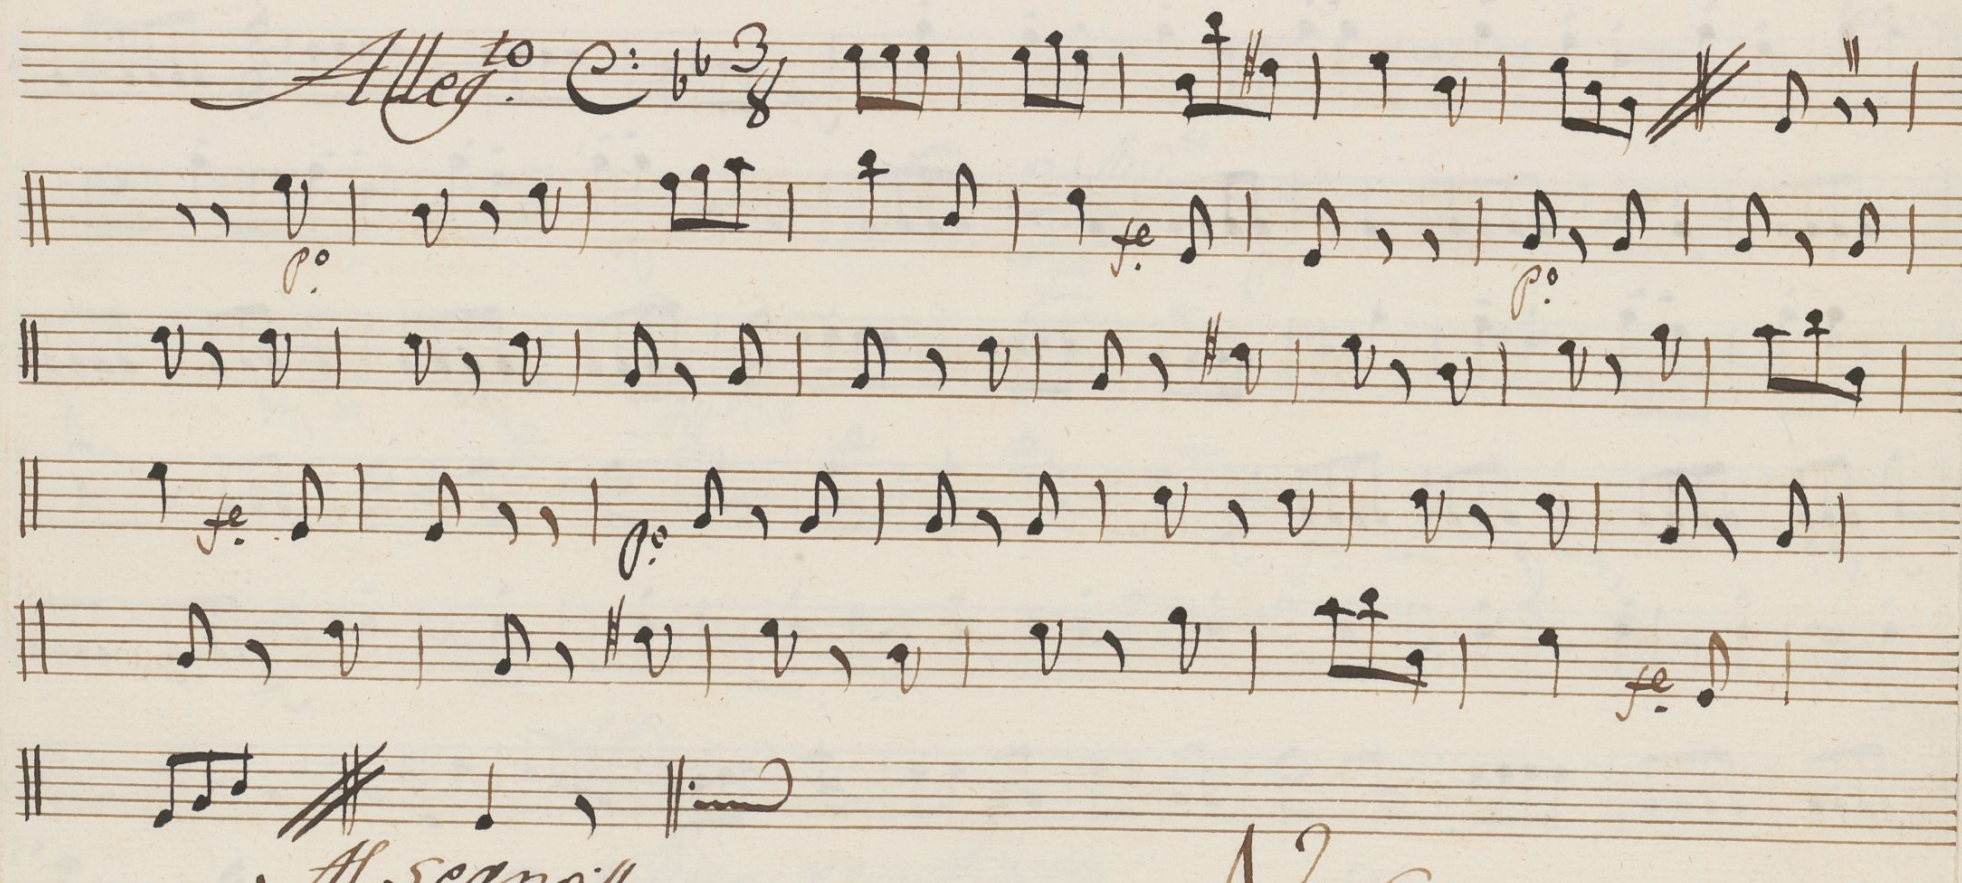 Alleg.to 3/8
p.o fe. p.o
fe. p.o
fe.
Al segno